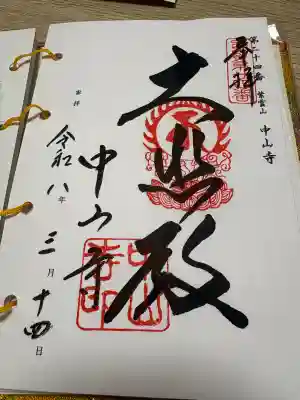 第二十四番 紫雲山 中山寺
奉拝
大悲殿
中山寺
中山寺印
令和八年三月十四日